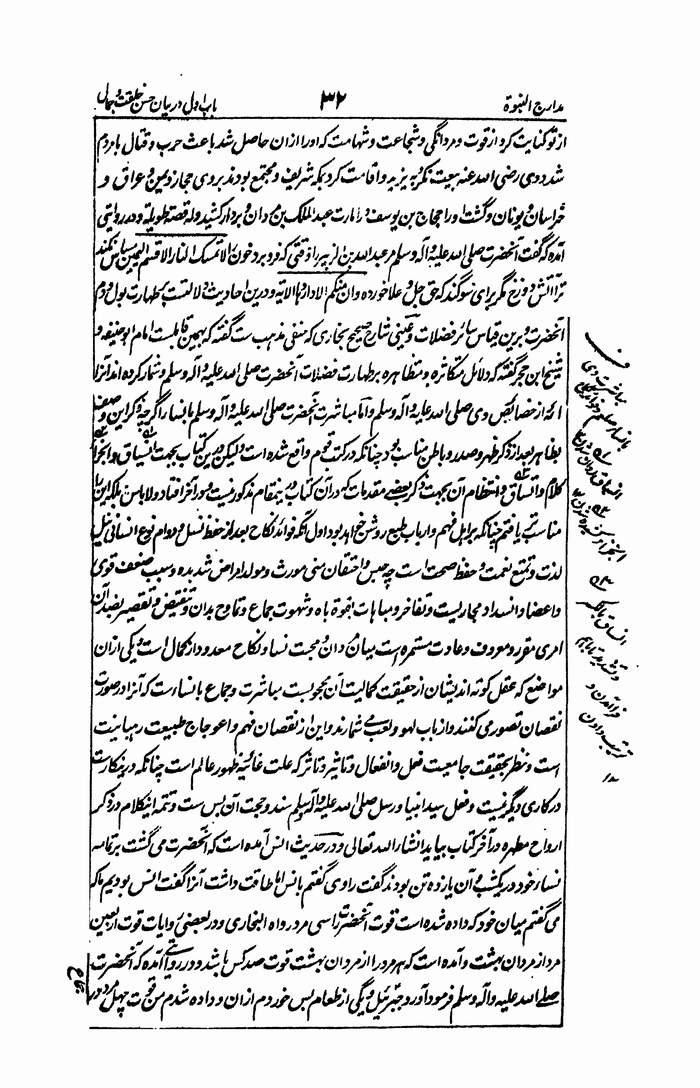 مدارج النبوة ۳۲ باب اول در بیان حسن خلقت و جمال
از تو کنایت کرد از قوت و مردانگی و شجاعت و شهامت که او را ازان حاصل شد باعث حرب و قتال با مردم
شد و وی رضی الله عنه بیعت نکرد به یزید و اقامت کرد بمکه شریف و مجتمع بودند بر وی حجاز و یمن و عراق و
خراسان و گشت او را حجاج بن یوسف در امارت عبد الملک بن مروان و بردار کشید و له قصة طویلة و در روایتی
آمده که گفت آنحضرت صلی الله علیه و آله وسلم مر عبد الله بن الزبیر را وقتی که فرو برد خون را لا تمسک النار الا قسم الیمین مساس نکند
ترا آتش دوزخ مگر برای سوگند که حق جل و علا خورده وان منکم الا واردها الایة و درین احادیث دلالت ست بر طهارت بول و دم
آنحضرت و برین قیاس سائر فضلات و عینی شارح صحیح بخاری که حنفی مذهب ست گفته که بهمین قائل ست امام ابو حنیفه و
شیخ ابن حجر گفته که دلائل متکاثره و متظاهره بر طهارت فضلات آنحضرت صلی الله علیه و آله وسلم و شمار کرده اند آنرا
ائمه از خصائص وی صلی الله علیه و آله وسلم و اما مباشرت آنحضرت صلی الله علیه و آله وسلم با نسا اگرچه ذکر این وصف
بظاهر بعد از ذکر ظهر و صدر و باطن مناسب بود چنانکه در کتب قوم واقع شده است ولیکن درین کتاب بجهت انسیاق و انجرار
کلام و اتساق و انتظام آن بجهت ذکر بعضی مقدمات که در آن کتاب درینمقام مذکور نیست موخر افتاد ولا باس بلکه این را
مناسب تر یافتم چنانکه بر اهل فهم و ارباب طبع روشن خواهد بود اول آنکه فوائد نکاح بعد از حفظ نسل و دوام نوع انسانی نیل
لذت و تمتع نعمت و حفظ صحت است چه حبس و احتقان منی مورث و مولد امراض شدیده و سبب ضعف قوی
و اعضا و انسداد مجاریست و تفاخر و مباهات بقوة باه و شهوت جماع و تمادح بدان و تنقیض و تقصیر بضد آن
امری مقرر و معروف و عادت مستمره است میان مردان و محبت نسا و نکاح معدود از کمال است و یکی از ان
مواضع که عقل کوته اندیشان از حقیقت کمالیت آن محجوبست مباشرت و جماع با نساست که آنرا در صورت
نقصان تصور می کنند و از باب لهو و لعب می شمارند و این از نقصان فهم و اعوجاج طبیعت رهبانیت
است و نظر بحقیقت جامعیت فعل و انفعال و تاثیر و تاثر که علت غائیه ظهور عالم است چنانکه درینکارست
در کاری دیگر نیست و فعل سید انبیا و رسل صلی الله علیه و آله وسلم سند و حجت آن بس ست و تتمه اینکلام در ذکر
ازواج مطهره در آخر کتاب بیاید انشاء الله تعالی و در حدیث انس آمده است که آنحضرت می گشت بر تمامه
نساء خود در یکشب و آن یازده تن بودند گفت راوی گفتم بانس آیا طاقت داشت آنرا گفت انس بودیم ما که
می گفتیم میان خود که داده شده است قوت آنحضرت را سی مرد رواه البخاری و در بعضی روایات قوت اربعین
مرد از مردان بهشت و آمده است که هر مرد را از مردان بهشت قوت صد کس باشد و در روایتی آمده که آنحضرت
صلی الله علیه و آله وسلم فرمود آورد جبرئیل دیگی از طعام پس خوردم از ان و داده شدم من قوت چهل مرد در
جماع
ف
مباشرت وی
انسیاق
انساق
۱۲